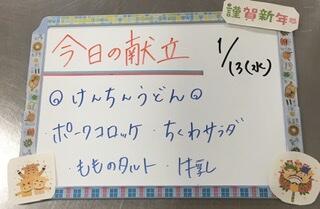 謹賀新年
今日の献立 1/13(水)
けんちんうどん
・ポークコロッケ ・ちくわサラダ
・もものタルト ・牛乳